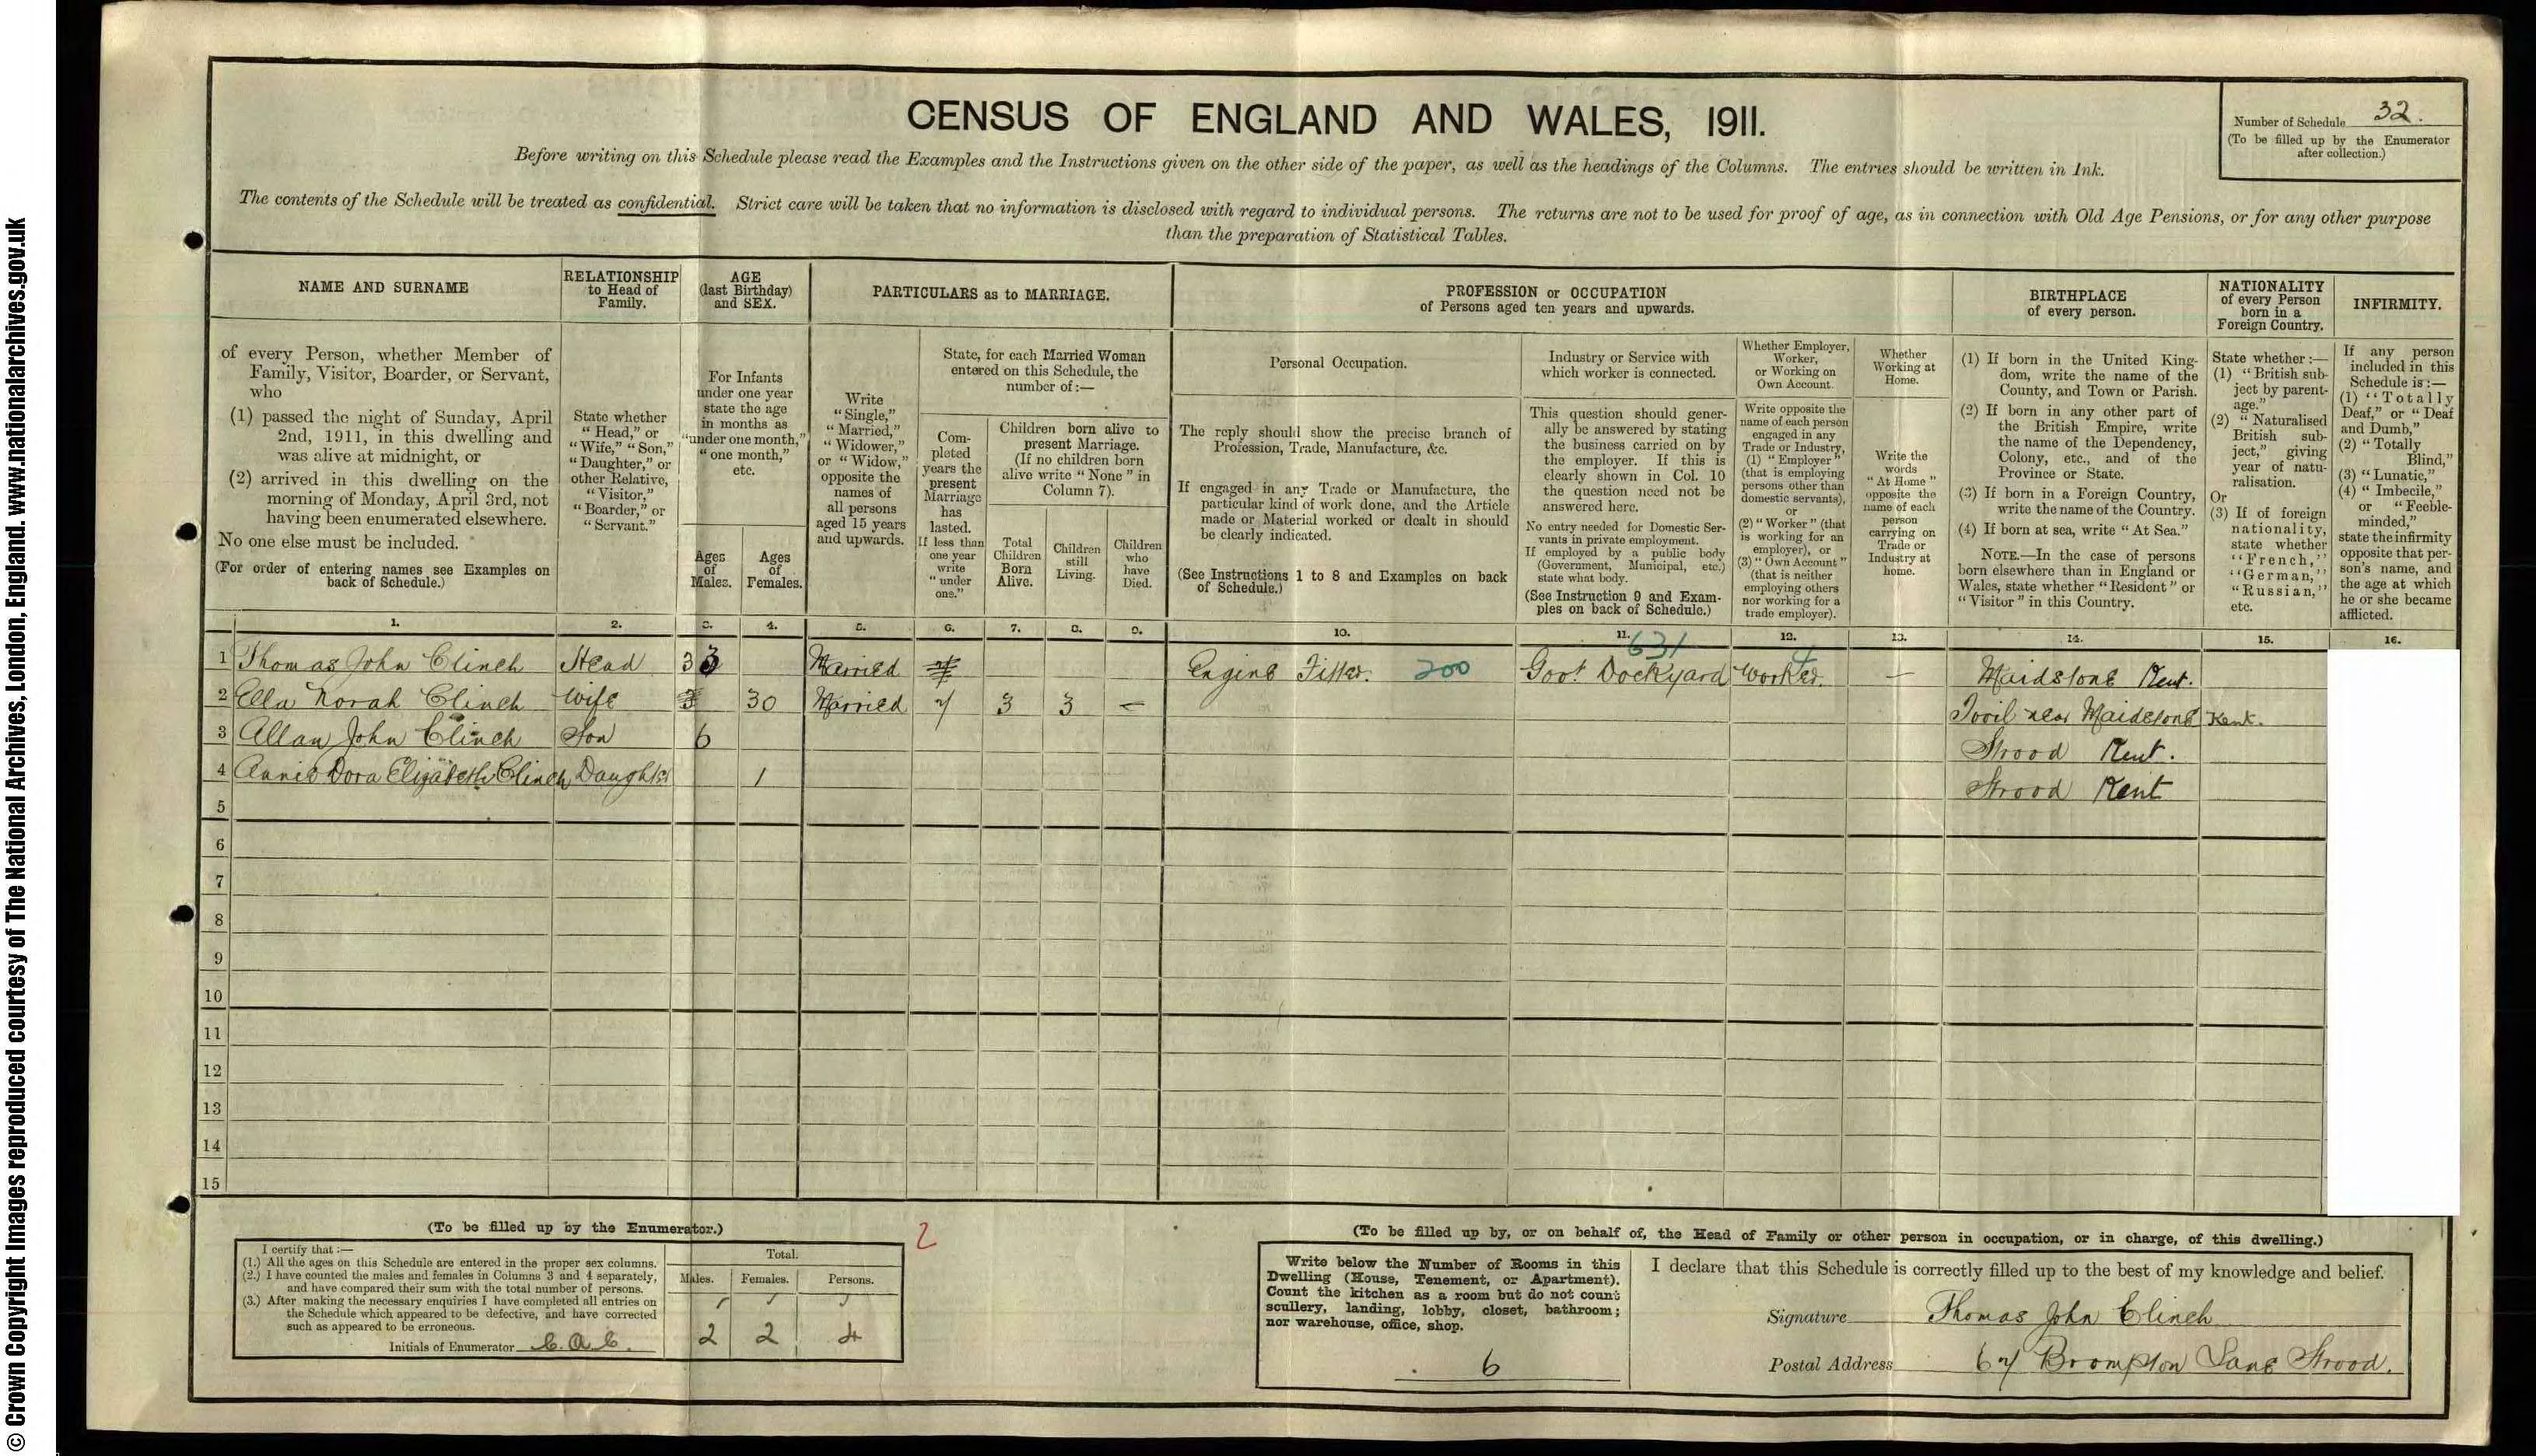 © Crown Copyright Images reproduced courtesy of The National Archives, London, England. www.nationalarchives.gov.uk
CENSUS OF ENGLAND AND WALES, 1911.
Number of Schedule 32.
(To be filled up by the Enumerator
after collection.)
Before writing on this Schedule please read the Examples and the Instructions given on the other side of the paper, as well as the headings of the Columns. The entries should be written in Ink.
The contents of the Schedule will be treated as confidential. Strict care will be taken that no information is disclosed with regard to individual persons. The returns are not to be used for proof of age, as in connection with Old Age Pensions, or for any other purpose
than the preparation of Statistical Tables.
NAME AND SURNAME
of every Person, whether Member of
Family, Visitor, Boarder, or Servant,
who
(1) passed the night of Sunday, April
2nd, 1911, in this dwelling and
was alive at midnight, or
(2) arrived in this dwelling on the
morning of Monday, April 3rd, not
having been enumerated elsewhere.
No one else must be included.
(For order of entering names see Examples on
back of Schedule.)
RELATIONSHIP
to Head of
Family.
State whether
"Head," or
"Wife," "Son,"
"Daughter," or
other Relative,
"Visitor,"
"Boarder," or
"Servant."
AGE
(last Birthday)
and SEX.
For Infants
under one year
state the age
in months as
"under one month,"
"one month,"
etc.
Ages
of
Males.
Ages
of
Females.
PARTICULARS as to MARRIAGE.
Write
"Single,"
"Married,"
"Widower,"
or "Widow,"
opposite the
names of
all persons
aged 15 years
and upwards.
State, for each Married Woman
entered on this Schedule, the
number of:—
Com-
pleted
years the
present
Marriage
has
lasted.
If less than
one year
write
"under
one."
Children born alive to
present Marriage.
(If no children born
alive write "None" in
Column 7).
Total
Children
Born
Alive.
Children
still
Living.
Children
who
have
Died.
PROFESSION or OCCUPATION
of Persons aged ten years and upwards.
Personal Occupation.
The reply should show the precise branch of
Profession, Trade, Manufacture, &c.
If engaged in any Trade or Manufacture, the
particular kind of work done, and the Article
made or Material worked or dealt in should
be clearly indicated.
(See Instructions 1 to 8 and Examples on back
of Schedule.)
Industry or Service with
which worker is connected.
This question should gener-
ally be answered by stating
the business carried on by
the employer. If this is
clearly shown in Col. 10
the question need not be
answered here.
No entry needed for Domestic Ser-
vants in private employment.
If employed by a public body
(Government, Municipal, etc.)
state what body.
(See Instruction 9 and Exam-
ples on back of Schedule.)
Whether Employer,
Worker,
or Working on
Own Account.
Write opposite the
name of each person
engaged in any
Trade or Industry,
(1) "Employer"
(that is employing
persons other than
domestic servants),
or
(2) "Worker" (that
is working for an
employer), or
(3) "Own Account"
(that is neither
employing others
nor working for a
trade employer).
Whether
Working at
Home.
Write the
words
"At Home"
opposite the
name of each
person
carrying on
Trade or
Industry at
home.
BIRTHPLACE
of every person.
(1) If born in the United King-
dom, write the name of the
County, and Town or Parish.
(2) If born in any other part of
the British Empire, write
the name of the Dependency,
Colony, etc., and of the
Province or State.
(3) If born in a Foreign Country,
write the name of the Country.
(4) If born at sea, write "At Sea."
NOTE.—In the case of persons
born elsewhere than in England or
Wales, state whether "Resident" or
"Visitor" in this Country.
NATIONALITY
of every Person
born in a
Foreign Country.
State whether:—
(1) "British sub-
ject by parent-
age."
(2) "Naturalised
British sub-
ject," giving
year of natu-
ralisation.
Or
(3) If of foreign
nationality,
state whether
"French,"
"German,"
"Russian,"
etc.
INFIRMITY.
If any person
included in this
Schedule is:—
(1) "Totally
Deaf," or "Deaf
and Dumb,"
(2) "Totally
Blind,"
(3) "Lunatic,"
(4) "Imbecile,"
or "Feeble-
minded,"
state the infirmity
opposite that per-
son's name, and
the age at which
he or she became
afflicted.
1. 2. 3. 4. 5. 6. 7. 8. 9. 10. 11. 12. 13. 14. 15. 16.
631
1 Thomas John Clinch Head 33 Married Engine Fitter. 200 Govt Dockyard Worker. — Maidstone Kent.
2 Ella Norah Clinch Wife 30 Married 7 3 3 — Tovil near Maidstone Kent.
3 Allan John Clinch Son 6 Strood Kent.
4 Annie Dora Elizabeth Clinch Daughter 1 Strood Kent
5
6
7
8
9
10
11
12
13
14
15
(To be filled up by the Enumerator.)
I certify that:—
(1.) All the ages on this Schedule are entered in the proper sex columns.
(2.) I have counted the males and females in Columns 3 and 4 separately,
and have compared their sum with the total number of persons.
(3.) After making the necessary enquiries I have completed all entries on
the Schedule which appeared to be defective, and have corrected
such as appeared to be erroneous.
Initials of Enumerator
Total.
Males. Females. Persons.
2 2 4
2
(To be filled up by, or on behalf of, the Head of Family or other person in occupation, or in charge, of this dwelling.)
Write below the Number of Rooms in this
Dwelling (House, Tenement, or Apartment).
Count the kitchen as a room but do not count
scullery, landing, lobby, closet, bathroom;
nor warehouse, office, shop.
6
I declare that this Schedule is correctly filled up to the best of my knowledge and belief.
Signature Thomas John Clinch
Postal Address 67 Brompton Lane Strood.